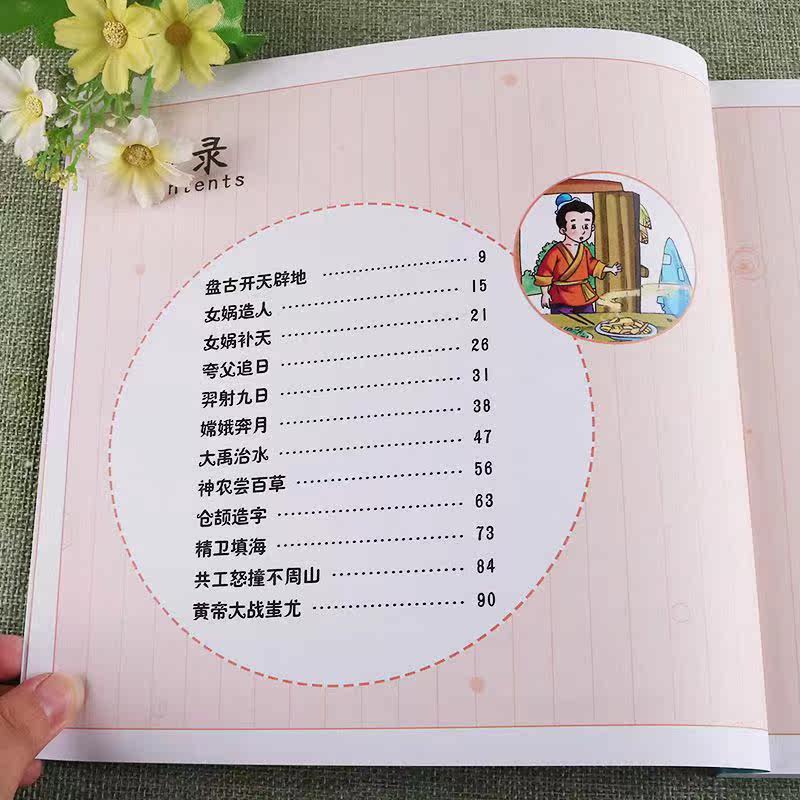 录
ntents
盘古开天辟地 ………… 9
女娲造人 ………… 15
女娲补天 ………… 21
夸父追日 ………… 26
羿射九日 ………… 31
嫦娥奔月 ………… 38
大禹治水 ………… 47
神农尝百草 ………… 56
仓颉造字 ………… 63
精卫填海 ………… 73
共工怒撞不周山 ………… 84
黄帝大战蚩尤 ………… 90